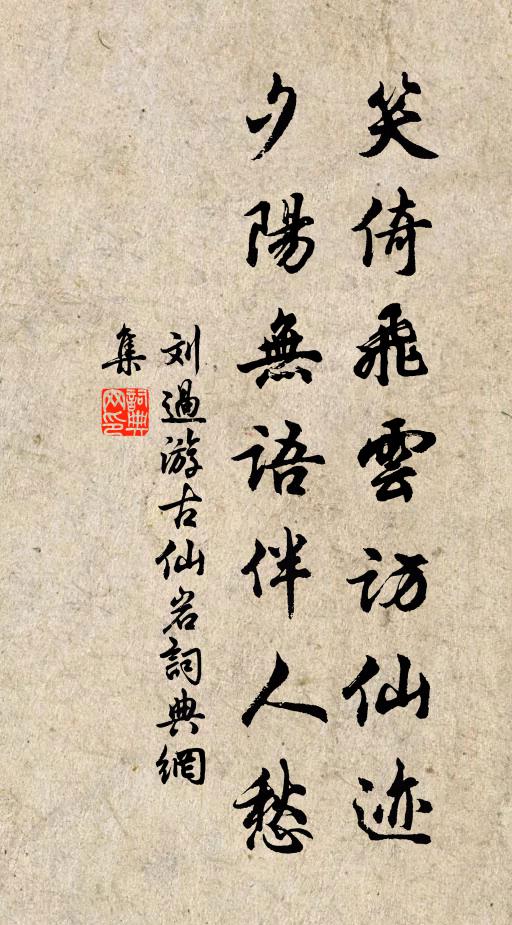 笑倚飛雲訪仙迹
夕陽無語伴人愁
刘過游古仙岩詞典網
集
詞典
网印